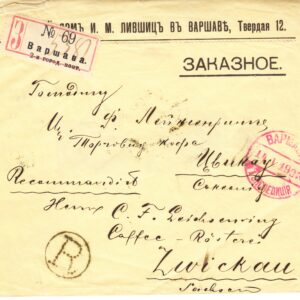 ДОМЪ И. М. ЛИВШИЦЪ ВЪ ВАРШАВѢ, Твердая 12.
З
№ 69
Варшава.
2-е город. почт.
ЗАКАЗНОЕ.
Господину
Ц. Ф. Лейхсенрингъ
Торговцу кофе
Цвикау
Саксонія
Recommandirt
Herrn C. F. Leichsenring
Caffee - Rösterei
Zwickau
Sachsen
R